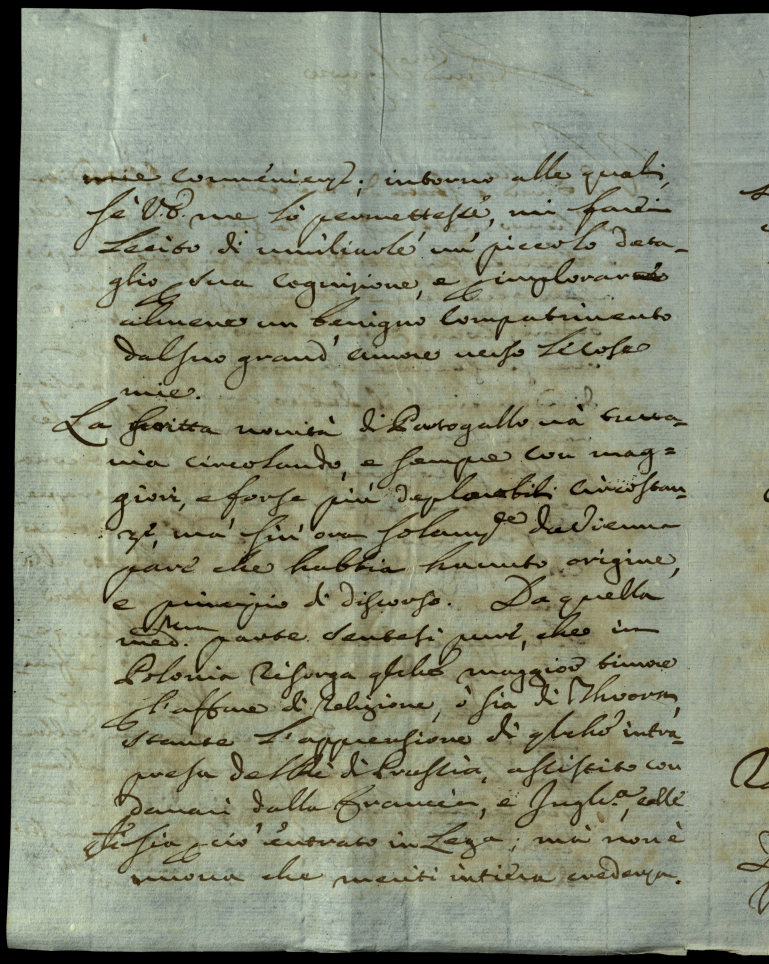 mie convenienze; intorno alle quali,
se V.E. me lo permettesse, mi farei
lecito di umiliarle un piccolo deta-
glio p sua cognizione, e p implorarne
almeno un benigno compatimento
dal suo grand' amore verso le cose
mie.
La scritta novità di Portogallo và tutta-
via circolando, e sempre con mag=
giori, e forse più deplorabili circostan-
ze, mà sin' ora solamte da Vienna
pare che habbia havuto origine,
e principio di discorso. Da quella
medma parte sentesi pure, che in
Polonia risorga qlche maggior timore
p l'affare di religione, ò sia di Thoorn,
stante l'apprensione di qlche intra-
presa del Rè di Prussia, assistito con
danari dalla Francia, e Inghra, colle
sia p ciò entrato in Lega; mà non è
nuova che meriti intiera credenza.